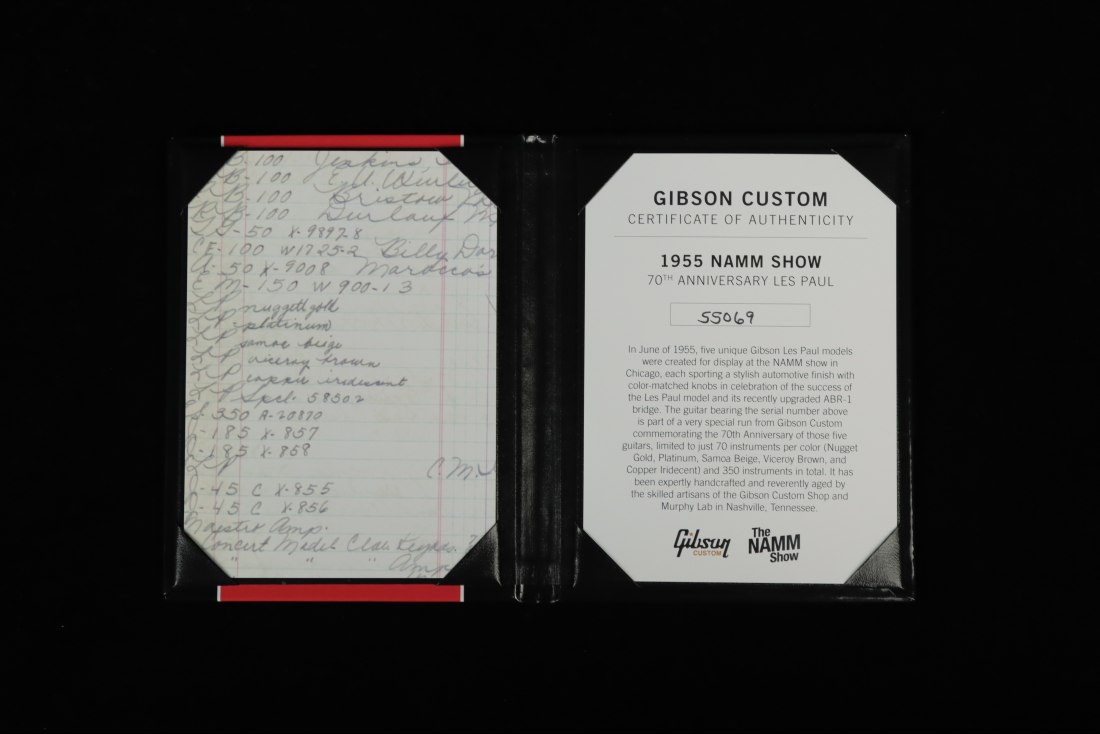 B-100 Jenkins
B-100
B-100 Bristow
B-100
-50 X-9897-8
CE-100 W1725-2 Billy Dor
-50 X-9008 Maroccos
E M-150 W 900-13
LP nuggett gold
LP platinum
LP samoa beige
LP viceroy brown
LP copper iridescent
LP Spcl. 58502
-350 A-20870
-185 X-857
-185 X-858
LP C.M.
-45 C X-855
-45 C X-856
Maestro Amp.
Concert Model Clav.
" " " Amp
GIBSON CUSTOM
CERTIFICATE OF AUTHENTICITY
1955 NAMM SHOW
70TH ANNIVERSARY LES PAUL
55069
In June of 1955, five unique Gibson Les Paul models
were created for display at the NAMM show in
Chicago, each sporting a stylish automotive finish with
color-matched knobs in celebration of the success of
the Les Paul model and its recently upgraded ABR-1
bridge. The guitar bearing the serial number above
is part of a very special run from Gibson Custom
commemorating the 70th Anniversary of those five
guitars, limited to just 70 instruments per color (Nugget
Gold, Platinum, Samoa Beige, Viceroy Brown, and
Copper Iridecent) and 350 instruments in total. It has
been expertly handcrafted and reverently aged by
the skilled artisans of the Gibson Custom Shop and
Murphy Lab in Nashville, Tennessee.
Gibson
CUSTOM
The
NAMM
Show